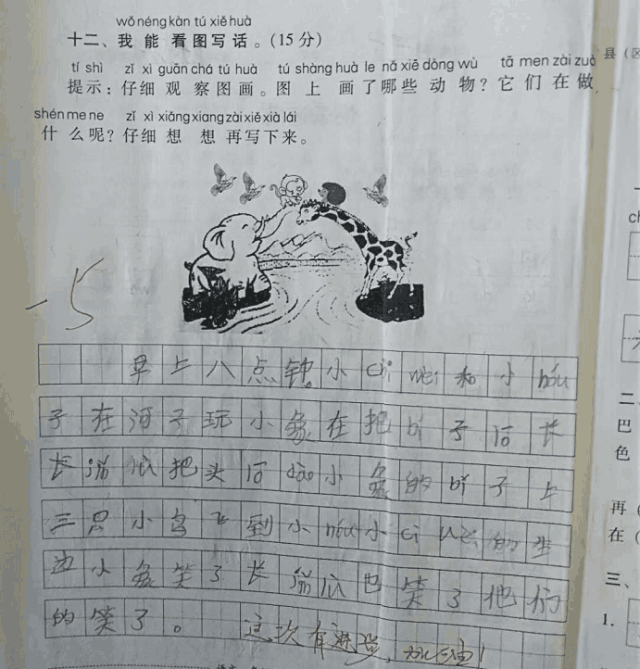 wǒ néng kàn tú xiě huà
十二、我 能 看 图 写 话 。(15 分)
tí shì zǐ xì guān chá tú huà tú shàng huà le nǎ xiē dòng wù tā men zài zuò
提示：仔细 观 察 图 画 。图 上 画 了 哪 些 动 物？它 们 在 做
shén me ne zǐ xì xiǎng xiang zài xiě xià lái
什 么 呢？仔 细 想 想 再 写 下 来 。
县（区
-5
早上八点钟,小ci wei和小hóu
子在河子玩小象在把bí子河长
长 把头河dào小象的bí子上
三只小鸟飞到小hóu小ci 的
边小象笑了长 也笑了他们
的笑了。 这次有进步，加油！
二
巴
色
再（
在（
三、
1.